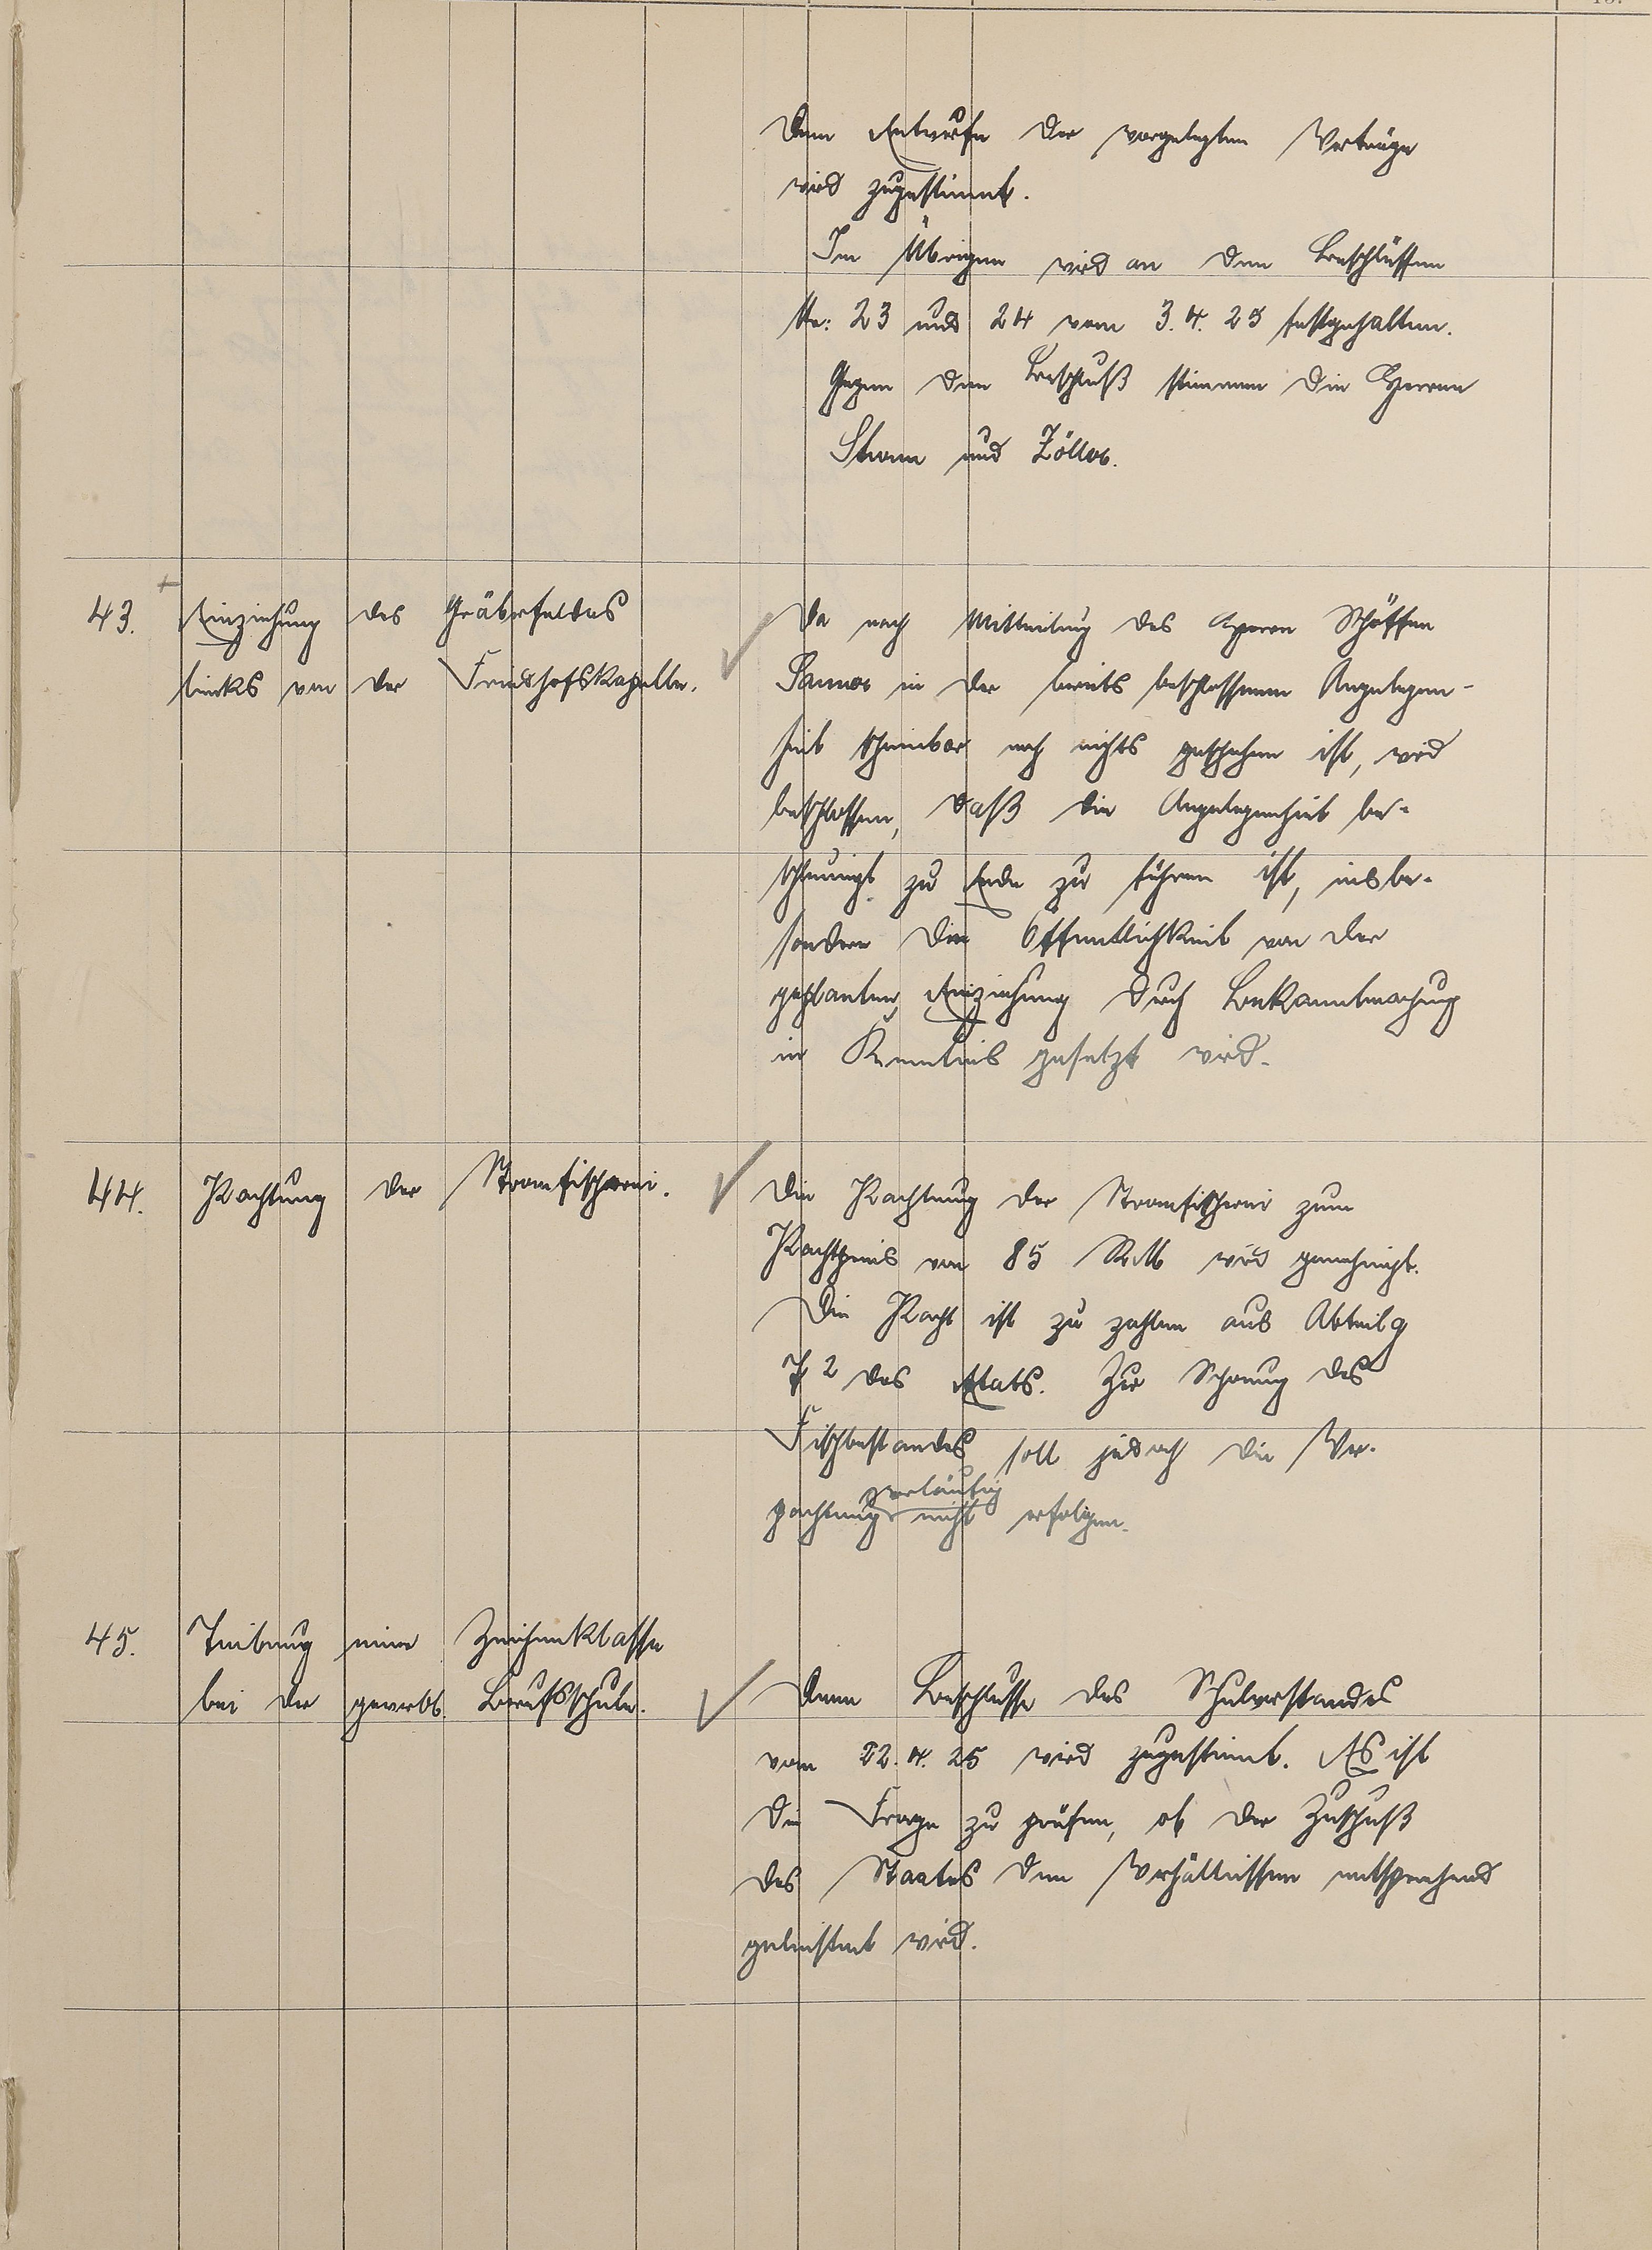 Dem Entwurfe der vorgelegten Verträge
wird zugestimmt.
Im Übrigen wird an den Beschlüssen
Nr: 23 und 24 vom 3.4.25 festgehalten.
Gegen den Beschluß stimmen die Herren
Sturm und Zöller.
43. Einziehung des Gräberfeldes
links von der Friedhofskapelle.
Da nach Mitteilung des Herrn Schöffen
Sauer in der bereits beschlossenen Angelegen-
heit scheinbar noch nichts geschehen ist, wird
beschlossen, daß die Angelegenheit be-
schleunigt zu Ende zu führen ist, insbe-
sondere die Öffentlichkeit von der
geplanten Einziehung durch Bekanntmachung
in Kenntnis gesetzt wird.
44. Pachtung der Stromfischerei.
Die Pachtung der Stromfischerei zum
Pachtpreis von 85 RM wird genehmigt.
Die Pacht ist zu zahlen aus Abteilg
I 2 des Etats. Zur Schonung des
Fischbestandes soll jedoch die Ver-
vorläufig
pachtung nicht erfolgen.
45. Teilung einer Zeichenklasse
bei der gewerbl. Berufsschule.
Dem Beschlusse des Schulvorstandes
vom 22.4.25 wird zugestimmt. Es ist
die Frage zu prüfen, ob der Zuschuß
des Staates den Verhältnissen entsprechend
geleistet wird.